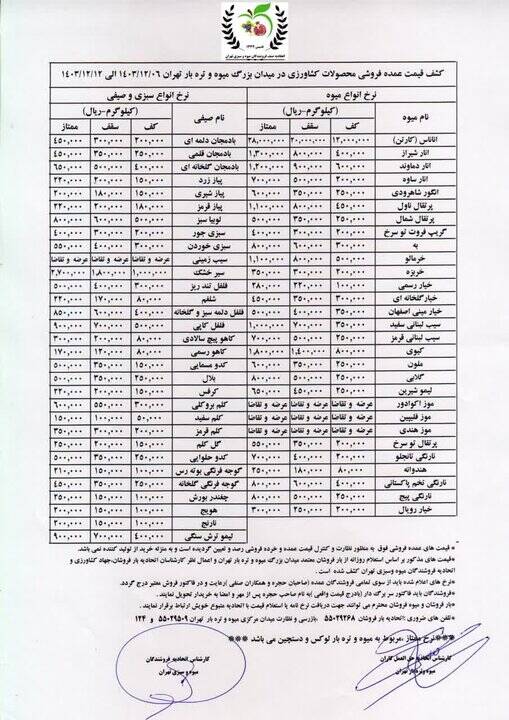 کشف قیمت عمده فروشی محصولات کشاورزی در میدان بزرگ میوه و تره بار تهران ۱۴۰۳/۱۲/۰۶ الی ۱۴۰۳/۱۲/۱۲
نرخ انواع میوه نرخ انواع سبزی و صیفی
نام میوه (کیلوگرم-ریال) نام صیفی (کیلوگرم-ریال)
کف سقف ممتاز کف سقف ممتاز
اناناس (کارتن) ۱۲,۰۰۰,۰۰۰ ۲۰,۰۰۰,۰۰۰ ۲۸,۰۰۰,۰۰۰ بادمجان دلمه ای ۲۰۰,۰۰۰ ۳۰۰,۰۰۰ ۴۵۰,۰۰۰
انار شیراز ۴۰۰,۰۰۰ ۸۰۰,۰۰۰ ۱,۳۰۰,۰۰۰ بادمجان قلمی ۲۵۰,۰۰۰ ۳۵۰,۰۰۰ ۴۵۰,۰۰۰
انار دماوند ۹۰۰,۰۰۰ ۱,۲۰۰,۰۰۰ بادمجان گلخانه ای ۴۰۰,۰۰۰ ۵۰۰,۰۰۰ ۶۵۰,۰۰۰
انار ساوه ۵۰۰,۰۰۰ ۷۰۰,۰۰۰ پیاز زرد ۱۵۰,۰۰۰ ۲۰۰,۰۰۰ ۲۲۰,۰۰۰
انگور شاهرودی ۲۵۰,۰۰۰ ۳۵۰,۰۰۰ ۶۰۰,۰۰۰ پیاز شیری ۱۵۰,۰۰۰ ۱۸۰,۰۰۰ ۲۰۰,۰۰۰
پرتقال ناول ۸۰۰,۰۰۰ ۱,۱۰۰,۰۰۰ پیاز قرمز ۱۸۰,۰۰۰ ۲۰۰,۰۰۰ ۲۲۰,۰۰۰
پرتقال شمال ۲۵۰,۰۰۰ ۳۵۰,۰۰۰ ۵۰۰,۰۰۰ لوبیا سبز ۵۰۰,۰۰۰ ۶۰۰,۰۰۰ ۸۰۰,۰۰۰
گریپ فروت تو سرخ ۲۰۰,۰۰۰ ۳۰۰,۰۰۰ ۴۰۰,۰۰۰ سبزی جور ۲۰۰,۰۰۰ ۳۰۰,۰۰۰ ۴۰۰,۰۰۰
به ۳۰۰,۰۰۰ ۶۰۰,۰۰۰ ۸۰۰,۰۰۰ سبزی خوردن ۳۰۰,۰۰۰ ۴۰۰,۰۰۰ ۵۵۰,۰۰۰
خرمالو ۵۰۰,۰۰۰ ۸۰۰,۰۰۰ ۱,۱۰۰,۰۰۰ سیب زمینی عرضه و تقاضا عرضه و تقاضا عرضه و تقاضا
خربزه ۲۰۰,۰۰۰ ۳۰۰,۰۰۰ ۳۵۰,۰۰۰ سیر خشک ۱,۰۰۰,۰۰۰ ۱,۸۰۰,۰۰۰ ۲,۷۰۰,۰۰۰
خیار رسمی ۱۰۰,۰۰۰ ۲۲۰,۰۰۰ ۲۸۰,۰۰۰ فلفل تند ریز ۳۰۰,۰۰۰ ۴۰۰,۰۰۰ ۵۰۰,۰۰۰
خیارگلخانه ای ۲۵۰,۰۰۰ ۳۵۰,۰۰۰ ۴۵۰,۰۰۰ شلغم ۸۰,۰۰۰ ۱۷۰,۰۰۰ ۲۲۰,۰۰۰
خیار مینی اصفهان ۳۵۰,۰۰۰ ۴۰۰,۰۰۰ ۵۰۰,۰۰۰ فلفل دلمه سبز و گلخانه ۴۰۰,۰۰۰ ۶۰۰,۰۰۰ ۸۵۰,۰۰۰
سیب لبنانی سفید ۳۵۰,۰۰۰ ۷۰۰,۰۰۰ ۱,۰۰۰,۰۰۰ فلفل کاپی ۵۰۰,۰۰۰ ۷۰۰,۰۰۰ ۹۰۰,۰۰۰
سیب لبنانی قرمز ۲۵۰,۰۰۰ ۵۰۰,۰۰۰ ۷۰۰,۰۰۰ کاهو پیچ سالادی ۸۰,۰۰۰ ۲۰۰,۰۰۰ ۳۰۰,۰۰۰
کیوی ۸۰۰,۰۰۰ ۱,۴۰۰,۰۰۰ ۱,۸۰۰,۰۰۰ کاهو رسمی ۸۰,۰۰۰ ۱۲۰,۰۰۰ ۱۷۰,۰۰۰
ملون ۲۵۰,۰۰۰ ۳۵۰,۰۰۰ ۶۰۰,۰۰۰ کدو مسمایی ۳۵۰,۰۰۰ ۵۰۰,۰۰۰
گلابی ۲۵۰,۰۰۰ ۵۰۰,۰۰۰ ۸۰۰,۰۰۰ بلال ۲۵۰,۰۰۰ ۳۵۰,۰۰۰ ۵۰۰,۰۰۰
لیمو شیرین ۲۵۰,۰۰۰ ۴۵۰,۰۰۰ ۶۵۰,۰۰۰ کرفس ۱۵۰,۰۰۰ ۲۰۰,۰۰۰ ۲۲۰,۰۰۰
موز اکوادور عرضه و تقاضا عرضه و تقاضا عرضه و تقاضا کلم بروکلی ۳۰۰,۰۰۰ ۵۵۰,۰۰۰ ۶۰۰,۰۰۰
موز فلیپین عرضه و تقاضا عرضه و تقاضا عرضه و تقاضا کلم سفید ۵۰,۰۰۰ ۱۰۰,۰۰۰ ۱۵۰,۰۰۰
موز هندی عرضه و تقاضا عرضه و تقاضا عرضه و تقاضا کلم قرمز ۲۰۰,۰۰۰ ۳۰۰,۰۰۰ ۳۵۰,۰۰۰
پرتقال تو سرخ ۲۰۰,۰۰۰ ۳۵۰,۰۰۰ ۵۵۰,۰۰۰ گل کلم ۱۵۰,۰۰۰ ۲۰۰,۰۰۰ ۲۵۰,۰۰۰
نارنگی تانجلو ۲۰۰,۰۰۰ ۴۰۰,۰۰۰ ۷۰۰,۰۰۰ کدو حلوایی ۲۵۰,۰۰۰ ۳۵۰,۰۰۰ ۵۰۰,۰۰۰
هندوانه ۸۰,۰۰۰ ۱۸۰,۰۰۰ ۲۵۰,۰۰۰ گوجه فرنگی بوته رس ۱۰۰,۰۰۰ ۱۵۰,۰۰۰ ۲۱۰,۰۰۰
نارنگی تخم پاکستانی ۴۰۰,۰۰۰ ۶۰۰,۰۰۰ ۸۰۰,۰۰۰ گوجه فرنگی گلخانه ۲۵۰,۰۰۰ ۳۵۰,۰۰۰ ۴۵۰,۰۰۰
نارنگی پیج ۲۵۰,۰۰۰ ۵۰۰,۰۰۰ ۸۰۰,۰۰۰ چغندر بورش ۱۰۰,۰۰۰ ۱۵۰,۰۰۰ ۲۵۰,۰۰۰
خیار رویال ۲۰۰,۰۰۰ ۲۵۰,۰۰۰ ۳۰۰,۰۰۰ هویج ۱۰۰,۰۰۰ ۱۵۰,۰۰۰ ۲۰۰,۰۰۰
نارنج ۱۰۰,۰۰۰ ۱۵۰,۰۰۰ ۲۰۰,۰۰۰
لیمو ترش سنگی ۴۰۰,۰۰۰ ۷۰۰,۰۰۰ ۹۰۰,۰۰۰
*قیمت های عمده فروشی فوق به منظور نظارت و کنترل قیمت عمده و خرده فروشی رصد و تعیین گردیده است و به منزله خرید از تولید کننده نمی باشد.
*قیمت های مذکور بر اساس استعلام روزانه از بار فروشان معتمد میدان بزرگ میوه و تره بار تهران و اعمال نظر کارشناسان اتحادیه بارفروشان،جهاد کشاورزی و
اتحادیه فروشندگان میوه وسبزی تهران کشف شده است .
*نرخ های اعلام شده باید از سوی تمامی فروشندگان عمده (صاحبان حجره و همکاران صنفی آنها) رعایت و در فاکتور فروش معتبر درج گردد.
*فروشندگان باید فاکتور سر برگ دار (بادرج قیمت واقعی )به نام صاحب حجره پس از مهر و امضا به خریدار تحویل نمایند .
*بار فروشان و میوه فروشان محترم می توانند جهت دریافت نرخ نامه با استعلام قیمت با اتحادیه متبوع خویش ارتباط برقرار نمایند .
*تلفن های ضروری :اتحادیه بار فروشان ۵۵۰۲۹۲۶۸ ،بازرسی و نظارت میدان مرکزی میوه و تره بار تهران ۵۵۰۲۹۵۰۹ و ۱۲۴
***نرخ ممتاز ،مربوط به میوه و تره بار لوکس و دستچین می باشد ***
کارشناس اتحادیه حق العمل کاران
میوه وتره بار تهران
کارشناس اتحادیه فروشندگان
میوه و سبزی تهران